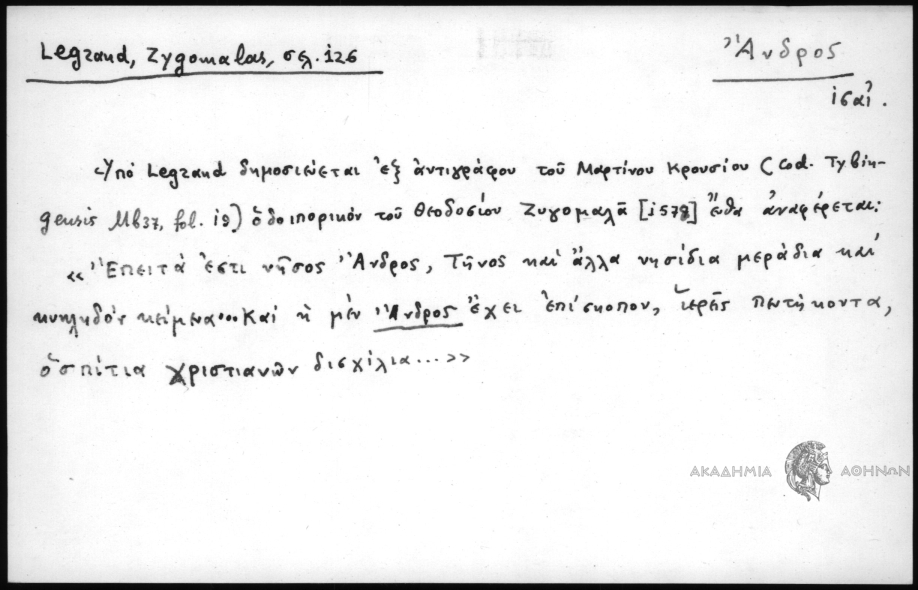 Legrand, Zygomalas, σελ. 126
Ἄνδρος
ισαί.
Ὑπό Legrand δημοσιεύεται ἐξ ἀντιγράφου τοῦ Μαρτίνου Κρουσίου (Cod. Tybin-
gensis Mb37, fol. 19) ὁδοιπορικόν τοῦ Θεοδοσίου Ζυγομαλᾶ [1578] ἔθα ἀναφέρεται:
« Ἔπειτά ἐστι νῆσος Ἄνδρος, Τῆνος καί ἄλλα νησίδια μεράδια καί
κυκληδόν κείμενα... Καί ἡ μέν Ἄνδρος ἔχει ἐπίσκοπον, ἱερῆς πεντήκοντα,
ὁσπίτια χριστιανῶν δισχίλια... »
ΑΚΑΔΗΜΙΑ ΑΘΗΝΩΝ